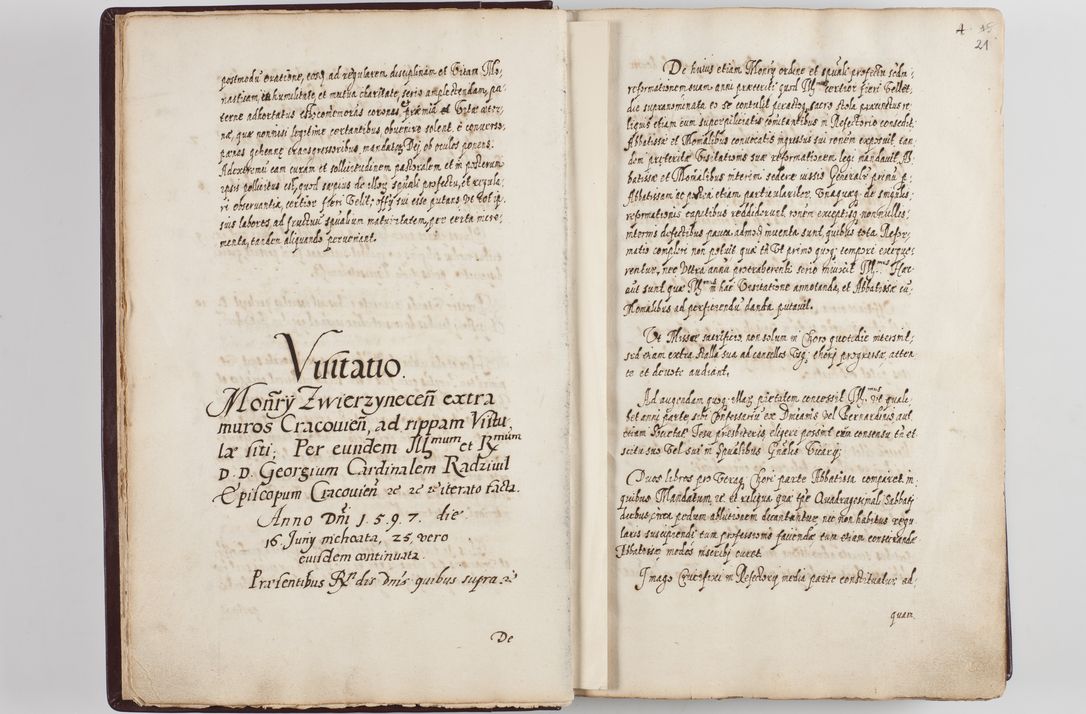 postmodu oratione, eosq ad regularem disciplinam et Vitam Mo,
nasticam, in humilitate, et mutua charitate, serio amplectendam, pa,
terne adhortatus est, comemorās coronas, præmia et Vitæ æter,
næ, quæ nonnisi legitime certantibus, obvenire solent, è converso,
pænas gehennæ transgressoribus, mandatoq Dej, ob oculos ponens.
Ad extremū eam curam et sollicitudinem pastoralem et in posterum
ipsis pollicitus est, quod sæpius de illoq spūali profectu, et regula,
ri observantia, certior fieri Velit, offj sui esse putans Vt tot ip,
sius labores ad fructuū spūalium maturitatem, per certa incre,
menta, tandem aliquando perveniant.
Visitatio.
Moñry Zwierzynecen̄ extra
muros Cracovien̄, ad rippam Vistu,
læ siti, Per eundem Illmum et Rmum
D. D. Georgium Cardinalem Radziuil
Episcopum Cracovien̄ &c &c &c iterato facta.
Anno Dn̄i 1.5.9.7. die
16 Juny inchoata, 25 vero
eiusdem continuata.
Præsentibus Rdis Dn̄is quibus supra &c
De
4 15
21
De huius etiam Monry ordine et spūali profectu secun,
reformationem suam anni præteriti quod Illmus certior fieri Vellet,
die supranominata eo se contulit peractoq sacro stola præcinctus re
liquis etiam cum superpelliciatis comitantibus in Refectorio consedit,
Abbatissæ et Monalibus convocatis ingressus sui ronem exposuit tan
dem præteritæ Visitationis suæ reformationem legi mandavit, Ab
batissæ et Monalibus interim sedere iussis Generalr primū p
Abbatissam ac postea etiam particulariter Vnaquæq de singulis,
reformationis capitibus reddiderunt ronem exceptisq nonnullis,
internis defectibus pauca admodū inventa sunt, quibus tota Refor,
matio compleri non potuit quæ tn̄ Vt primo quoq tempori exeque,
rentur, nec Vltra annū protraherentr serio iniunxit Illmus Hæc
aut sunt quæ Illmus in hac Visitatione annotanda, et Abbatissæ cū
Monalibus ad perficiendū danda putavit.
Vt Missæ sacrificio, non solum in Choro quotidie intersint,
sed etiam extra stalla sua ad cancellos Vsq, chori progressæ, atten
te et devote audiant,
Ad augendam quoq Illaq pietatem concessit Illmus Vt quoli
bet anni parte sibi Confessariū ex Dn̄ianis Vel Bernardinis aut
etiam Societat̄ Iesu presbiteris eligere possint cum consensu tn̄ et
scitu suo Vel sui in Spūalibus Gn̄alis Vicarij
Duos libros pro Vtraq Chori parte Abbatissa comparet in
quibus Mandatum, &c. et reliqua quæ tpr Quadragesimali Sabbatj
diebus, circa pedum ablutionem decantantur nec non habitus regu
laris suscipiendi tum professionis faciendæ tum etiam consecrandæ
Abbatissæ modos inscribi curet.
Imago Crucifixi in Refectorij media parte constituatur ad
quam